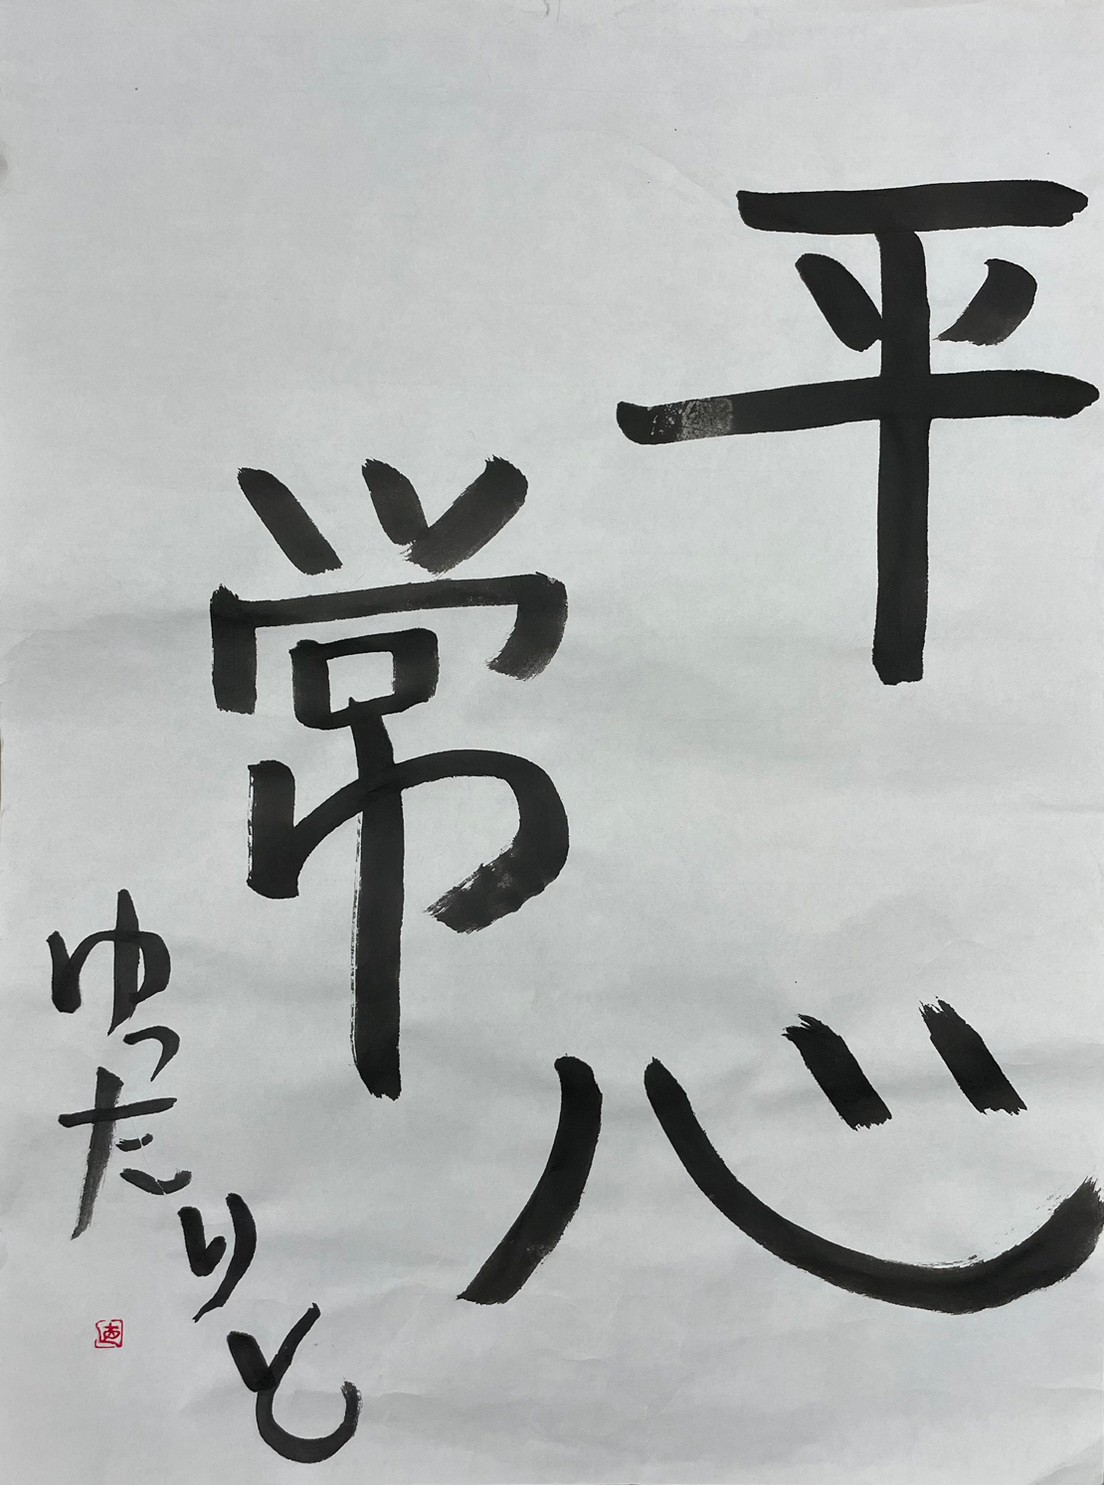 平常心
ゆったりと